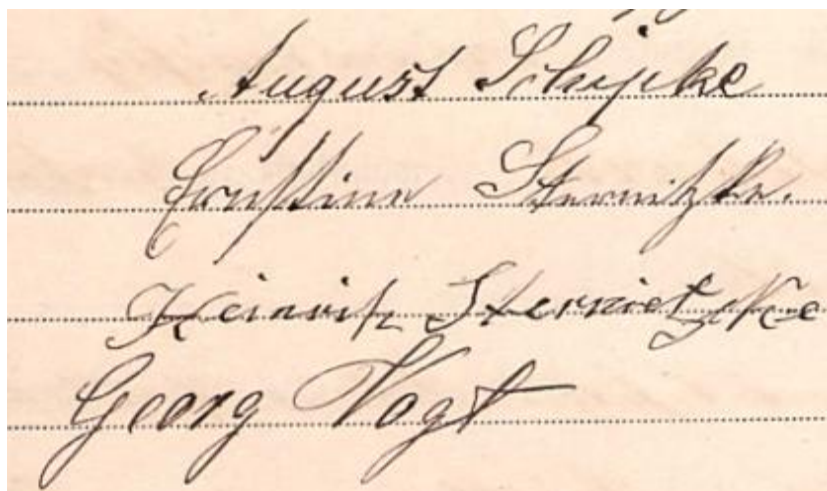 August Schipke
Ernstine Sternitzke.
Heinrich Sternietzke
Georg Vogt